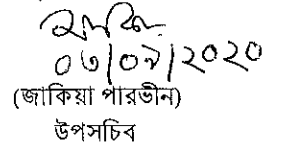 ০৩/০৯/২০২০
(জাকিয়া পারভীন)
উপসচিব